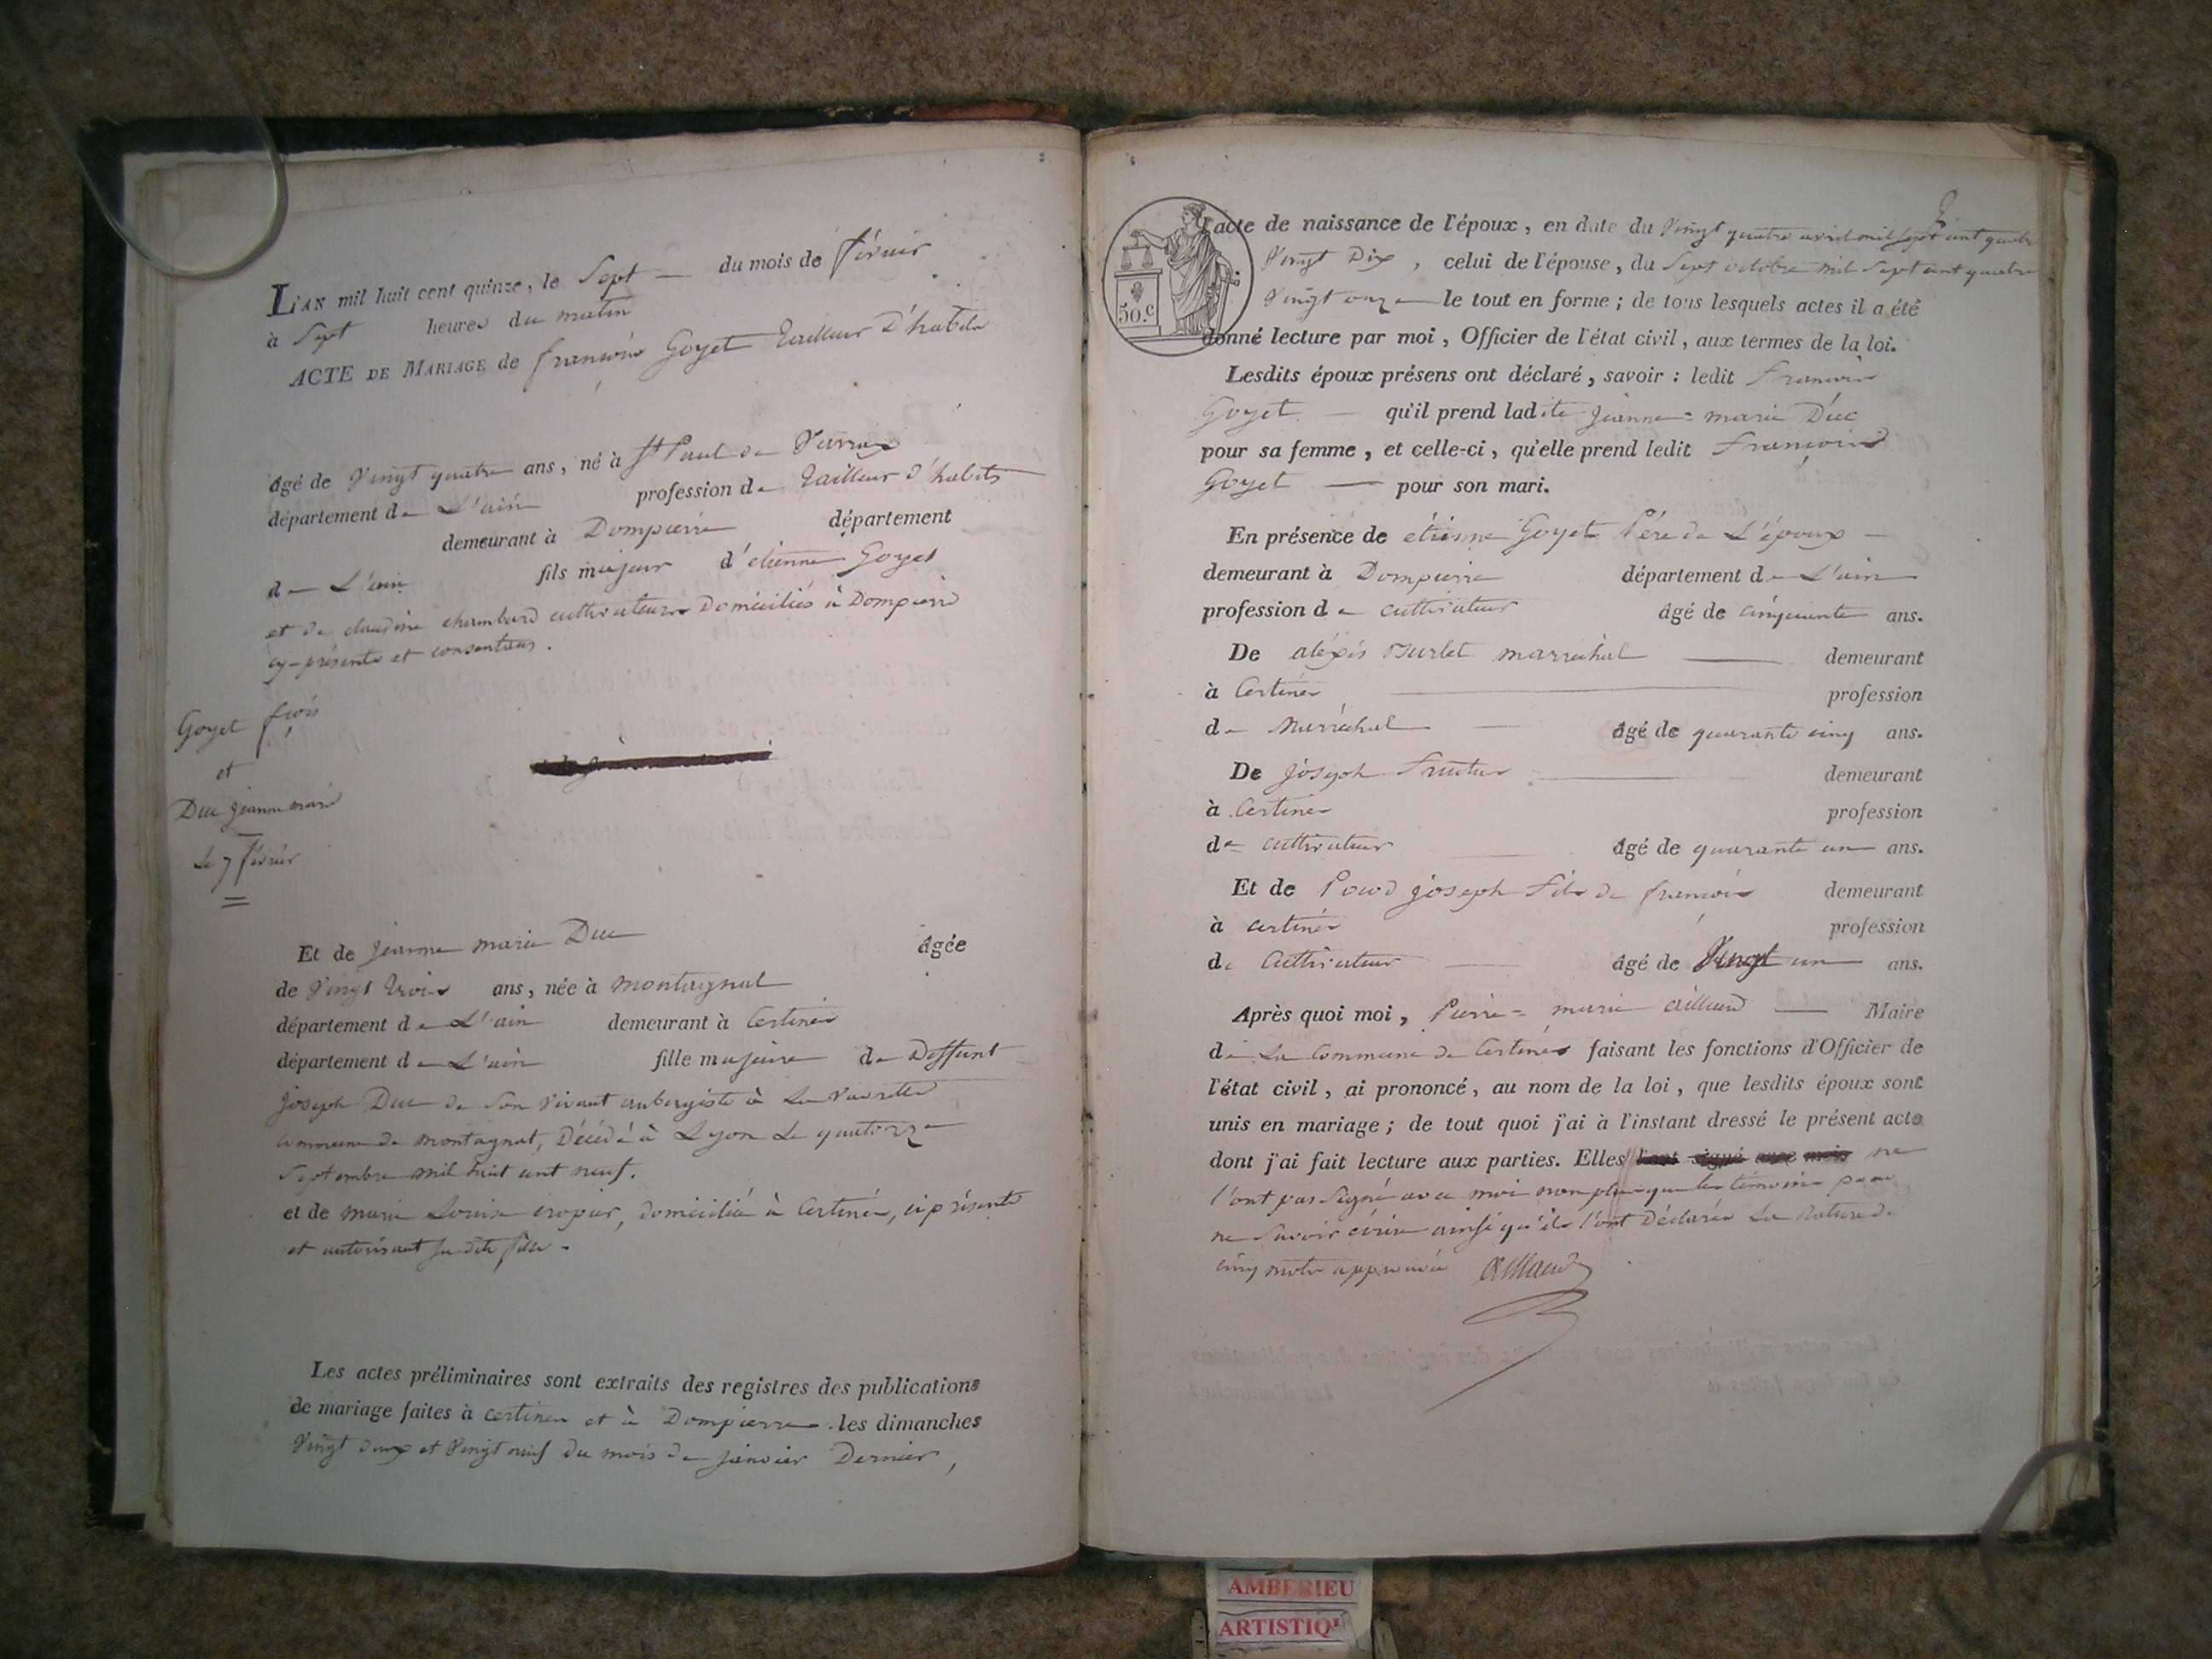 L'AN mil huit cent quinze, le Sept — du mois de février
à Sept heures du matin
ACTE DE MARIAGE de françois Goyet tailleur d'habits
âgé de Vingt quatre ans, né à St Paul de Varax
département de L'ain profession de tailleur d'habits
demeurant à Dompierre département
de L'ain fils majeur d'etienne Goyet
et de claudine chambard cultivateurs Domiciliés à Dompierre
cy-présents et consentans.
Goyet frçois
et
Duc jeanne marie
Le 7 février
Et de jeanne marie Duc âgée
de Vingt trois ans, née à montagnat
département de L'ain demeurant à Certines
département de L'ain fille majeure de Deffunt
joseph Duc de Son Vivant aubergiste à La
commune de montagnat, Décédé à Lyon Le quatorze
Septembre mil huit cent neuf.
et de marie Louise, domiciliée à Certines, ci présente
et autorisant sa dite fille.
Les actes préliminaires sont extraits des registres des publications
de mariage faites à certines et à Dompierre les dimanches
Vingt deux et Vingt neuf du mois de janvier Dernier,
l'acte de naissance de l'époux, en date du Vingt quatre avril mil Sept cent quatre
Vingt Dix, celui de l'épouse, du Sept octobre mil Sept cent quatre
Vingt onze le tout en forme; de tous lesquels actes il a été
donné lecture par moi, Officier de l'état civil, aux termes de la loi.
50.c
Lesdits époux présens ont déclaré, savoir: ledit François
Goyet — qu'il prend ladite jeanne=marie Duc
pour sa femme, et celle-ci, qu'elle prend ledit François
Goyet — pour son mari.
En présence de étienne Goyet Père de L'époux —
demeurant à Dompierre département de L'ain
profession de cultivateur âgé de cinquante ans.
De aléxis Burlet marréchal — demeurant
à Certines — profession
de Marréchal — âgé de quarante cinq ans.
De joseph — demeurant
à Certines profession
de cultivateur — âgé de quarante un ans.
Et de joseph fils de françois demeurant
à certines profession
de Cultivateur — âgé de Vingt un ans.
Après quoi moi, Pierre=marie aillaud — Maire
de La Commune de Certines faisant les fonctions d'Officier de
l'état civil, ai prononcé, au nom de la loi, que lesdits époux sont
unis en mariage; de tout quoi j'ai à l'instant dressé le présent acte
dont j'ai fait lecture aux parties. Elles l'ont signé avec moi ne
l'ont pas Signé avec moi non plus que les témoins pour
ne Savoir écrire ainsi qu'ils l'ont Déclaré La Rature de
cinq mots approuvée aillaud
AMBERIEU
ARTISTIQ